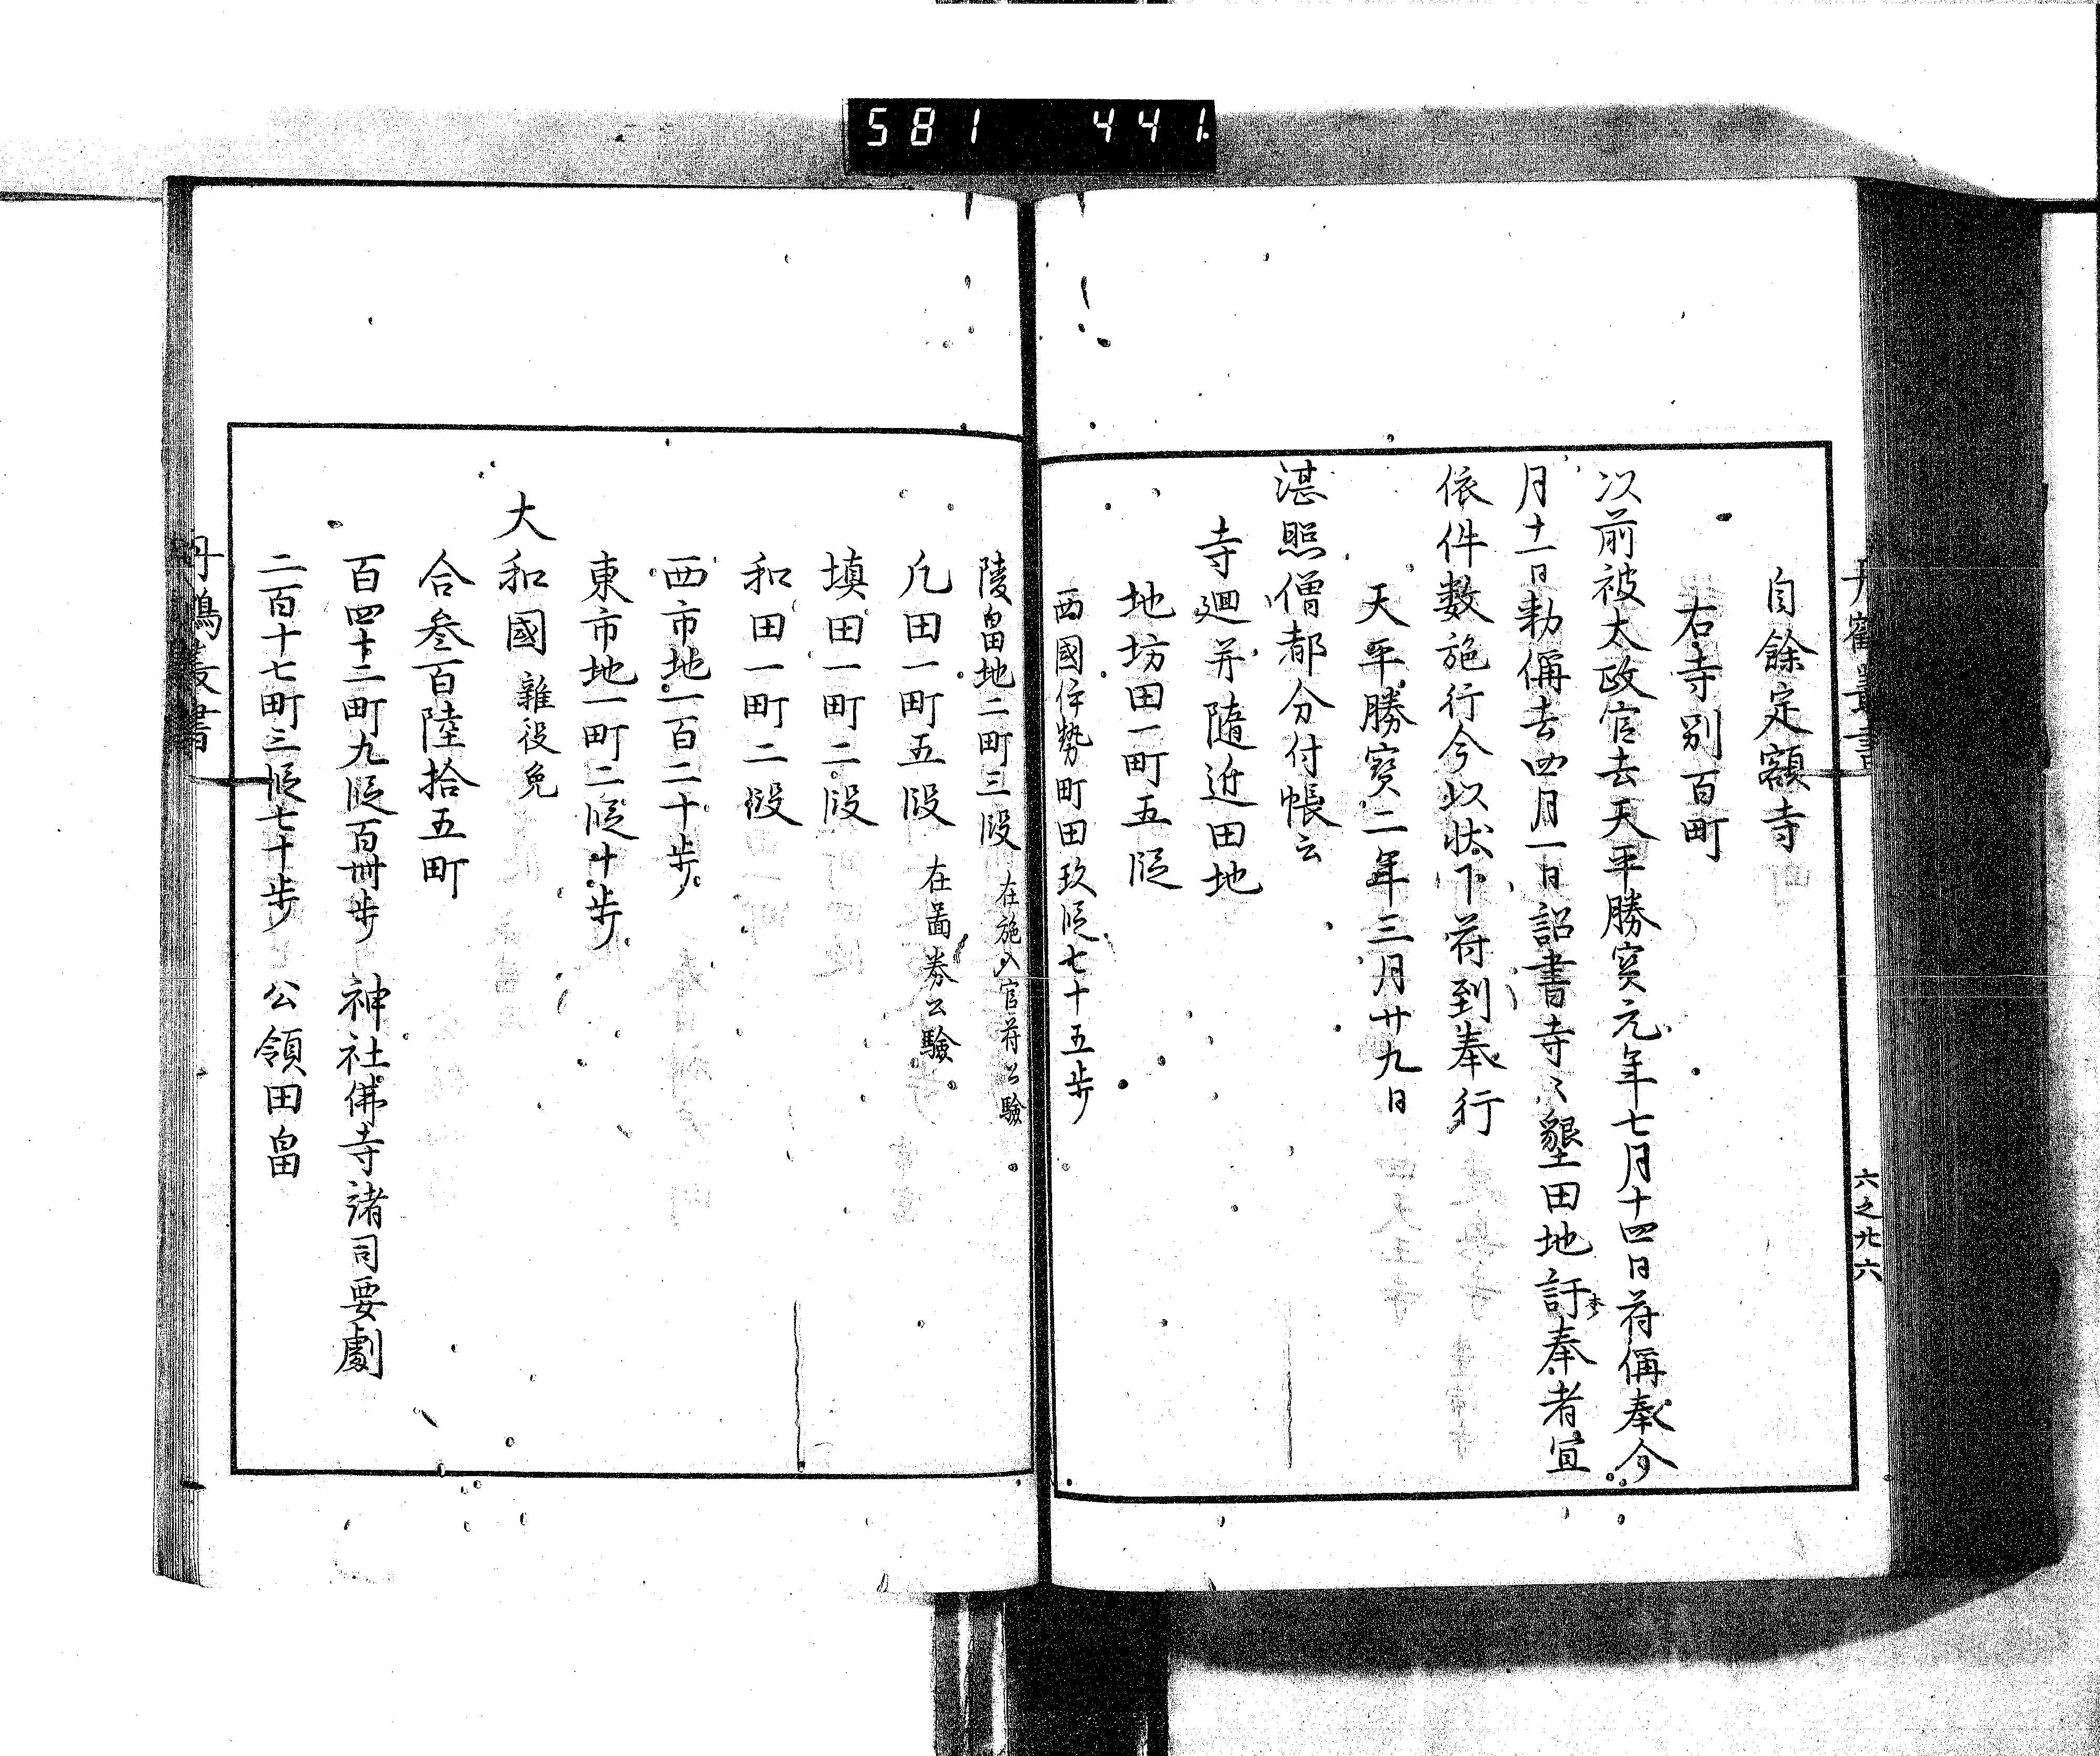 581 441
丹鶴叢書
六之廿六
自餘定額寺
右寺別百町
以前被太政官去天平勝寳元年七月十四日苻偁奉今
月十一日勅偁去四月一日詔書寺〻墾田地許奉者宣
依件數施行今以狀下苻到奉行
天平勝寳二年三月廿九日
湛照僧都分付帳云
寺廻并隨近田地
地坊田一町五段
西國伊勢町田玖段七十五步
陵畠地二町三段 在施入官苻公驗
凡田一町五段 在啚券公驗
填田一町二段
和田一町二段
西市地一百二十步
東市地一町二段十步
大和國 雜役免
合叄百陸拾五町
百四十二町九段百卌步 神社佛寺諸司要劇
二百十七町三段七十步 公領田畠
丹鶴叢書